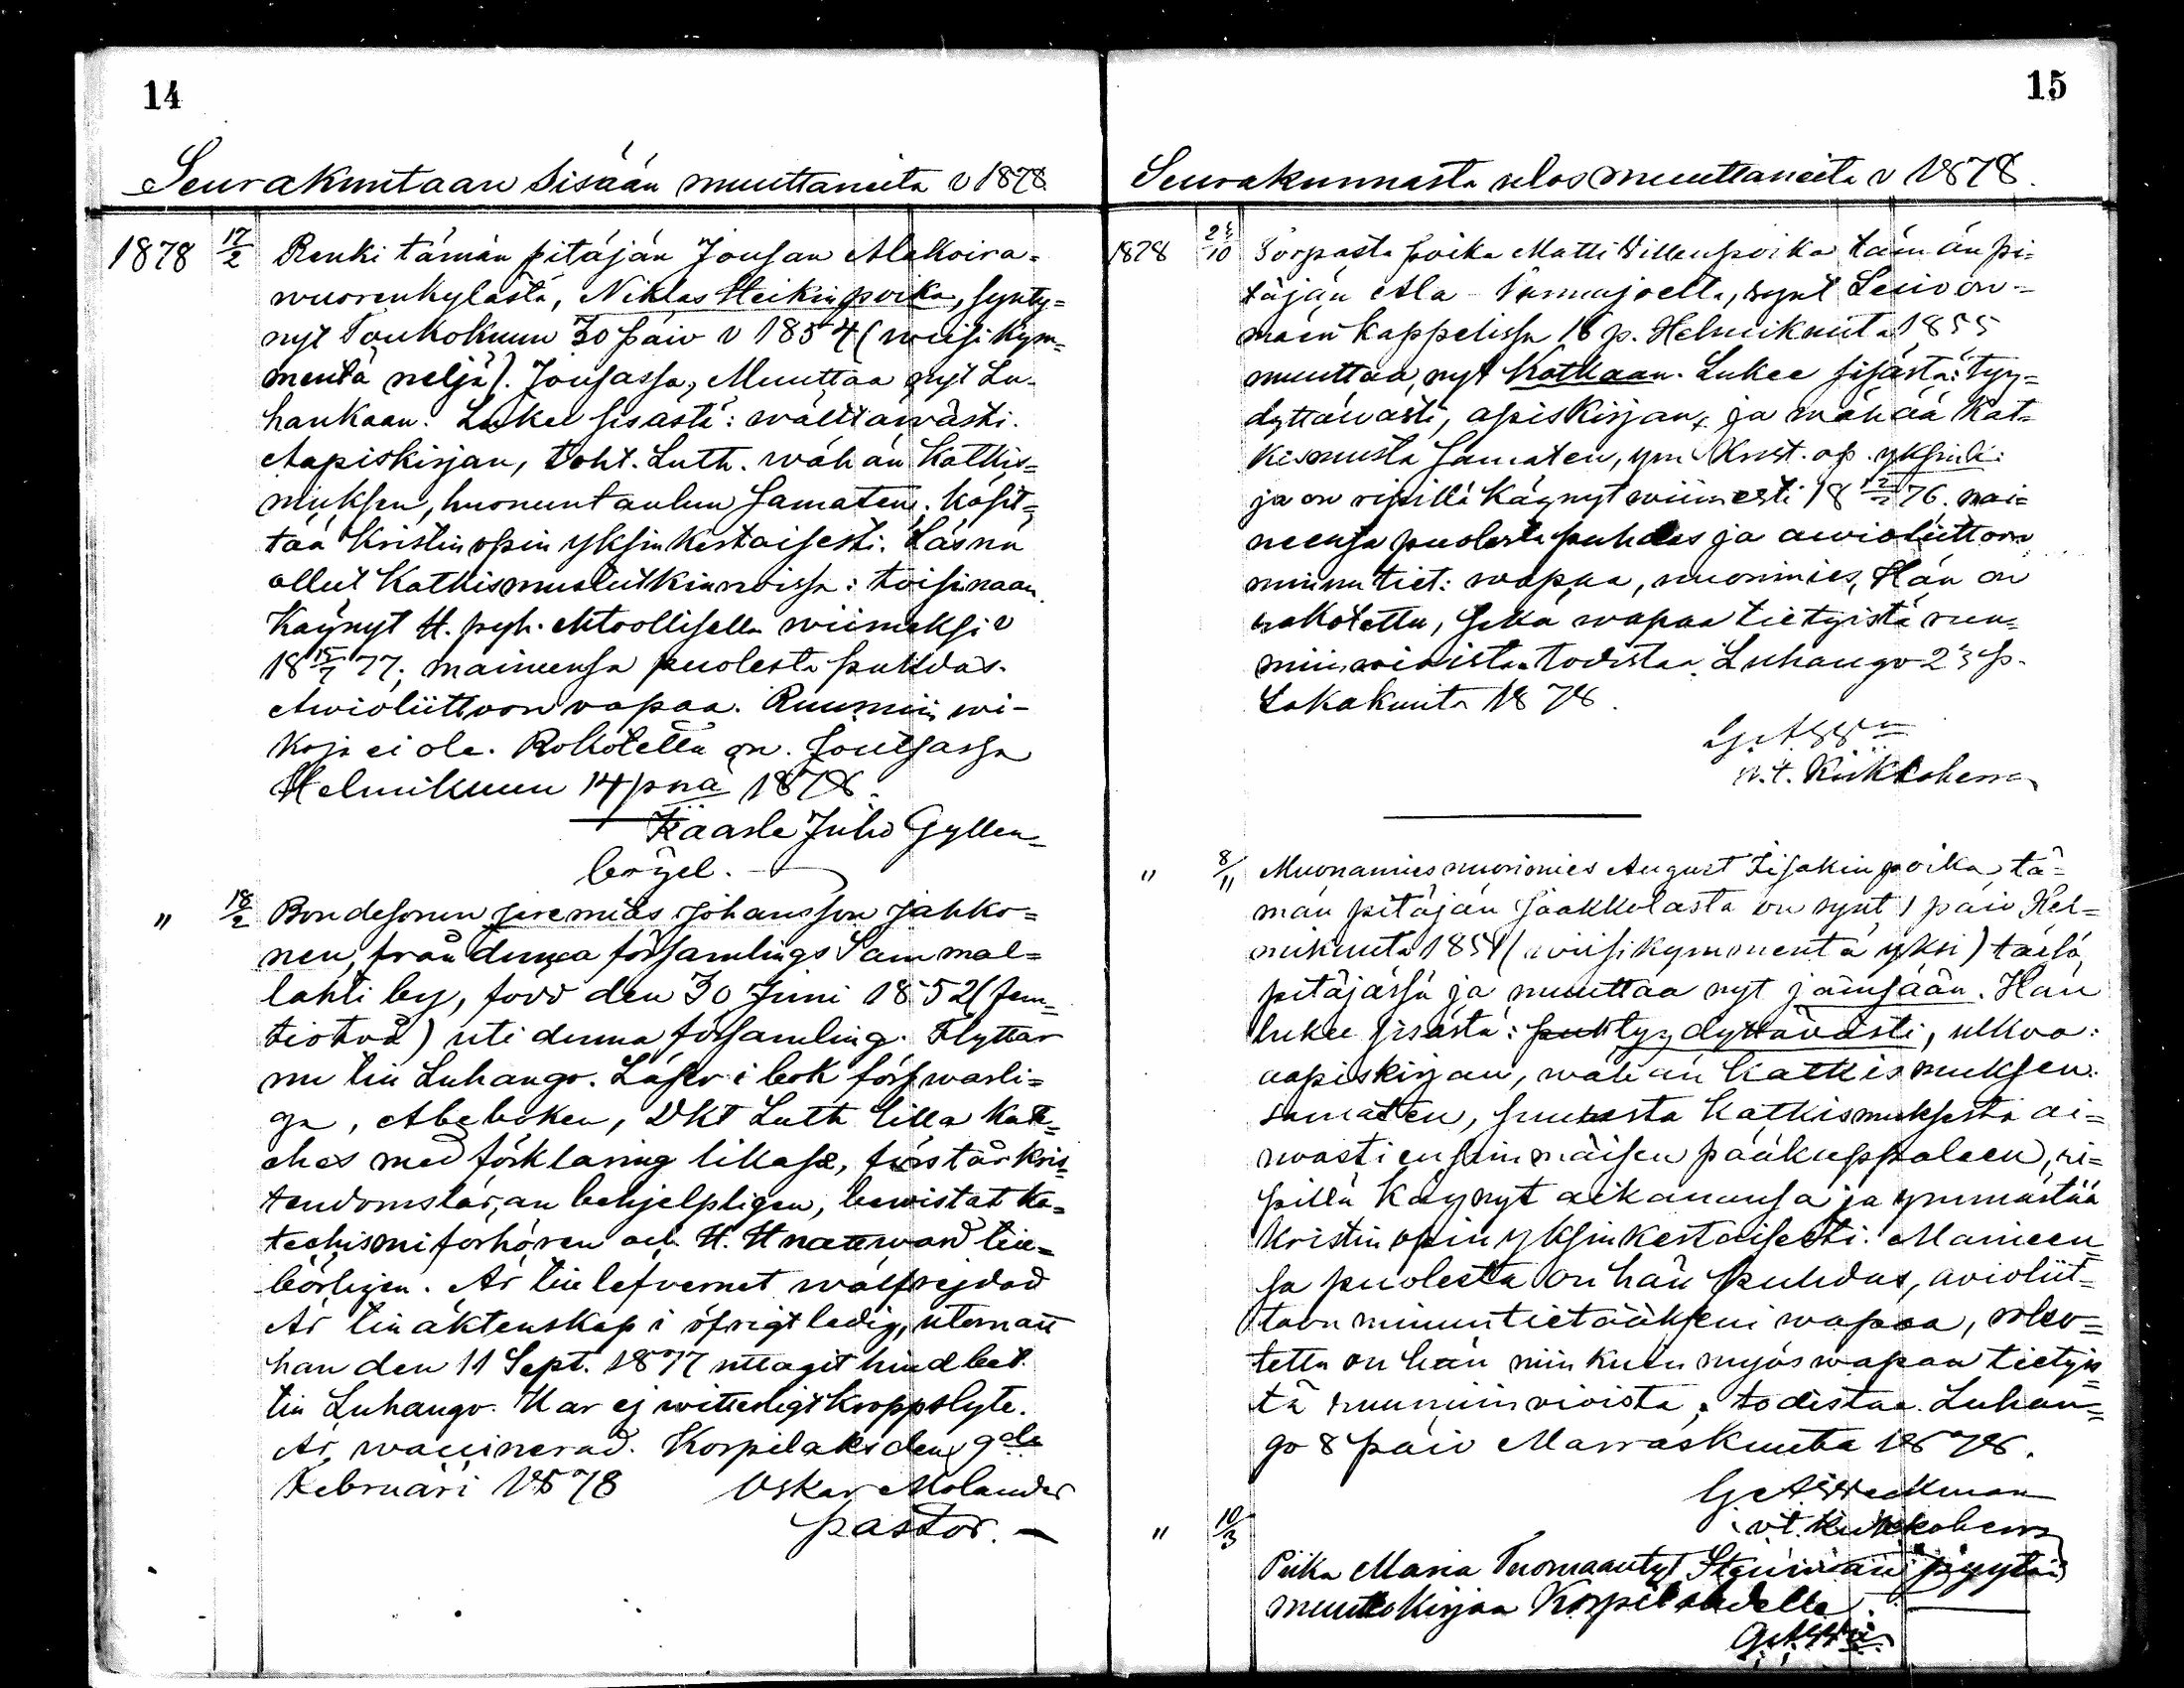 14
Seurakuntaan sisään muuttaneita v 1878
1878 17/2 Renki tämän pitäjän Jousan Alakoira-
wuorenkylästä, Niklas Heikinpoika, synty-
nyt Toukokuun 30 päiv v 1854 (wiisikym-
mentä neljä). Jousassa, Muuttaa nyt Lu-
hankaan. Lukee sisästä: wälttäwästi.
Aapiskirjan, Toht. Luth. wähän Katkis-
muksen, huonentaulun samaten. Käsit-
tää Kristin opin yksinkertaisesti. Läsnä
ollut Katkismuslutkinnoissa: toisinaan.
Käynyt H. pyh. ehtoollisella wiimeksi v
18 15/7 77; maineensa puolesta puhdas.
Awioliittoon vapaa. Ruumiin wi-
koja ei ole. Rokotettu on. Joutsassa
Helmikuun 14 pnä 1878.
Kaarle Juho Gyllen-
bögel.
" 18/2 Bondesonen Jeremias Johansson Jahko-
nen, från denna församlings Sammal-
lahti by, född den 30 Juni 1852 (fem-
tiotvå) uti denna församling. Flyttar
nu till Luhango. Läser i bok förswarli-
ga, Abeboken, Dkt Luth lilla Kate-
ches med förklaring likaså, förstår kris-
tendomsläran behjelpligen, bewistat ka-
techismiförhören och H. H. nattward till-
börligen. Är till lefvernet wälfrejdad
Är till äktenskap i öfrigt ledig, utom att
han den 11 Sept. 1877 uttagit hindbet.
till Luhango. Har ej witterligt kroppslyte.
Är waccinerad. Korpilaks den 9de
Februari 1878 Oskar Molander
pastor.
15
Seurakunnasta ulosmuuttaneita v 1878.
1878 10 Torpasta poika Matti Villenpoika tämän pi-
täjän Ala- synt Leivon-
mäen kappelissa 16 p. Helmikuuta 1855
muuttaa nyt Kotkaan. Lukee sisästä: tyy-
dyttäwästi, apiskirjan, ja wähää Kat-
kismusta samaten, ym Krist. op. yksink:
ja on ripillä käynyt wiimesti 18 76. mai-
neensa puolesta puhdas ja awioliittoon
minun tiet: wapaa, nuorimies, Hän on
rokotettu, sekä wapaa tietyistä ruu-
miin wioista todistaa. Luhango 23 p.
Lokakuuta 1878.
v.t. Kirkkoherra
" 8/11 Muonamies nuorimies August Iisakinpoika, tä-
män pitäjän Jaakkolasta on synt 1 päiv Hel-
mikuuta 1851 (wiisikymmentä yksi) tässä
pitäjässä ja muuttaa nyt Jämsään. Hän
lukee sisästä: tyydyttävästi, ulkoa:
aapiskirjan, wähän Katkismuksen
samaten, suuresta Katkismuksesta ai-
nwasti ensimmäisen pääkappaleen, ri-
pillä käynyt aikanansa ja ymmärtää
Kristin opin yksinkertaisesti. Maineen-
sa puolesta on hän puhdas, avioliit-
toon minun tietääkseni wapaa, roko-
tettu on hän niin kuin myös wapaa tietyis-
tä ruumiin vioista, todistaa. Luhan-
go 8 päiv Marraskuuta 1878.
G. A. Weckman
v.t. Kirkkoherra
" 10/3
Piika Maria Tuomaantyt pyytää
muuttokirjaa Korpilahdelle.